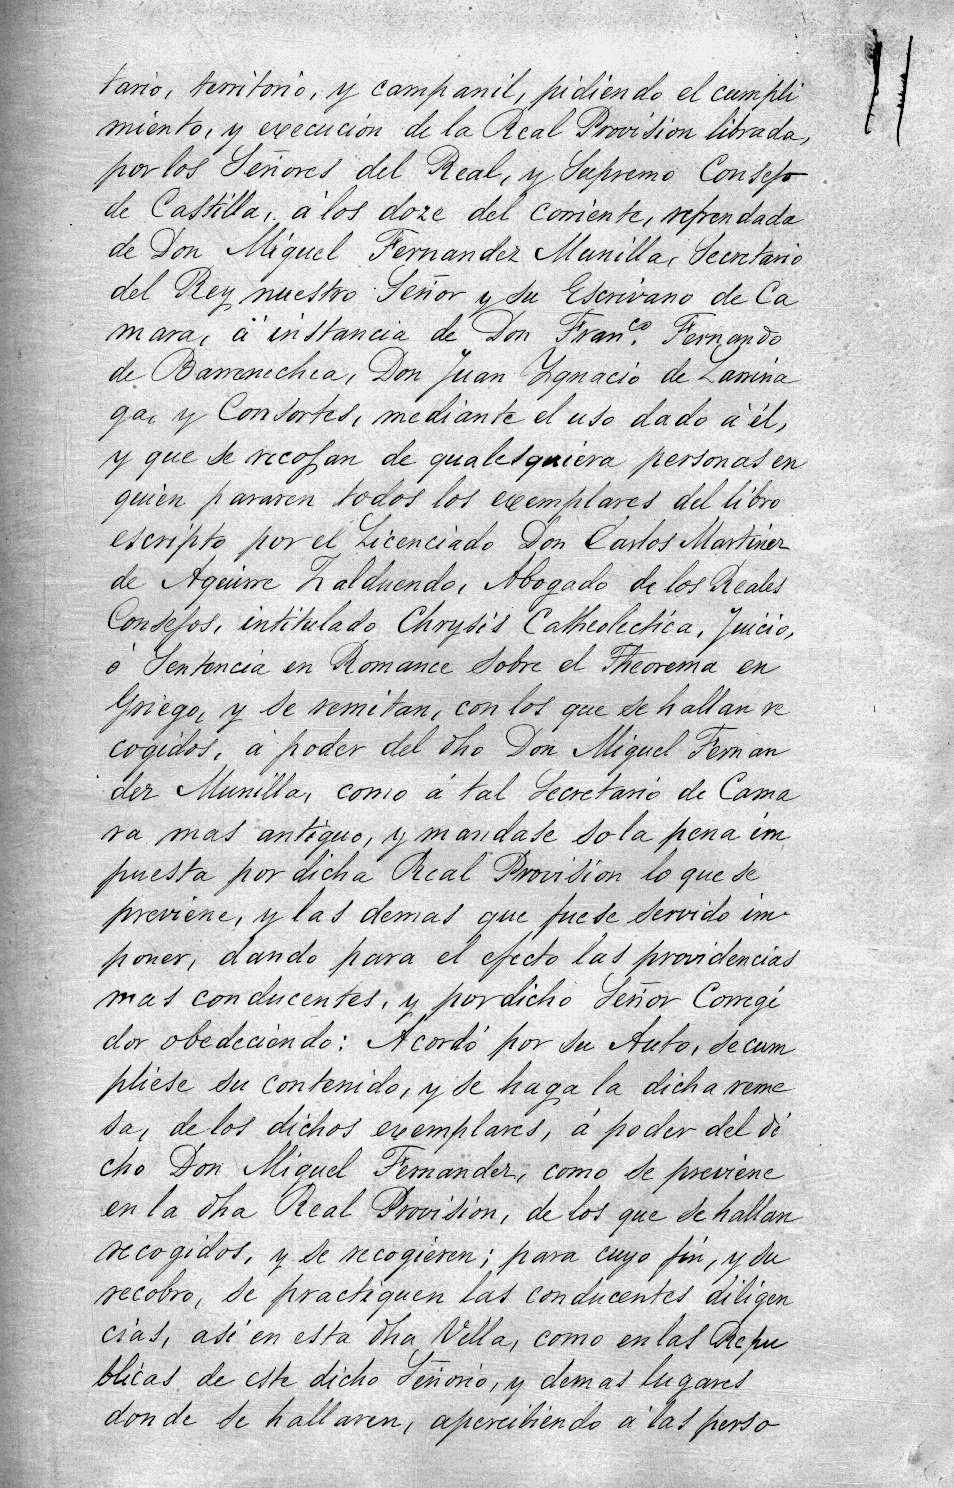 tario, territorio, y campanil, pidiendo el cumpli
miento, y execucion de la Real Provision librada,
por los Señores del Real, y Supremo Consejo
de Castilla, á los doze del corriente, refrendada
de Don Miguel Fernandez Munilla, Secretario
del Rey nuestro Señor y su Escrivano de Ca
mara, á instancia de Don Fran.co Fernando
de Barrenechea, Don Juan Ygnacio de Larrina
ga, y Consortes, mediante el uso dado á él,
y que se recojan de qualesquiera personas en
quien pararen todos los exemplares del libro
escripto por el Licenciado Don Carlos Martinez
de Aguirre Zalduendo, Abogado de los Reales
Consejos, intitulado Chrysis Catheolectica, Juicio,
ó Sentencia en Romance sobre el Theorema en
Griego, y se remitan, con los que se hallan re
cogidos, á poder del dho Don Miguel Fernan
dez Munilla, como á tal Secretario de Cama
ra mas antiguo, y mandase so la pena im
puesta por dicha Real Provision lo que se
previene, y las demas que fuese servido im-
poner, dando para el efecto las providencias
mas conducentes, y por dicho Señor Corregi
dor obedeciendo: Acordó por su Auto, se cum
pliese su contenido, y se haga la dicha reme
sa, de los dichos exemplares, á poder del di
cho Don Miguel Fernandez, como se previene
en la dha Real Provision, de los que se hallan
recogidos, y se recogieren; para cuyo fin, y su
recobro, se practiquen las conducentes diligen
cias, asi en esta dha Villa, como en las Repu
blicas de este dicho Señorio, y demas lugares
donde se hallaren, apercibiendo á las perso